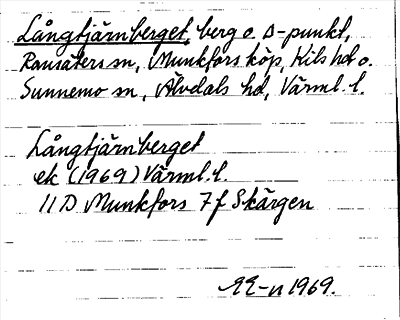 Långtjärnberget, berg o. Δ-punkt,
Ransäters sn, Munkfors köp, Kils hd o.
Sunnemo sn, Älvdals hd, Värml. l.
Långtjärnberget
ek (1969) Värml. l.
11 D Munkfors 7 f Skärgen
1969.